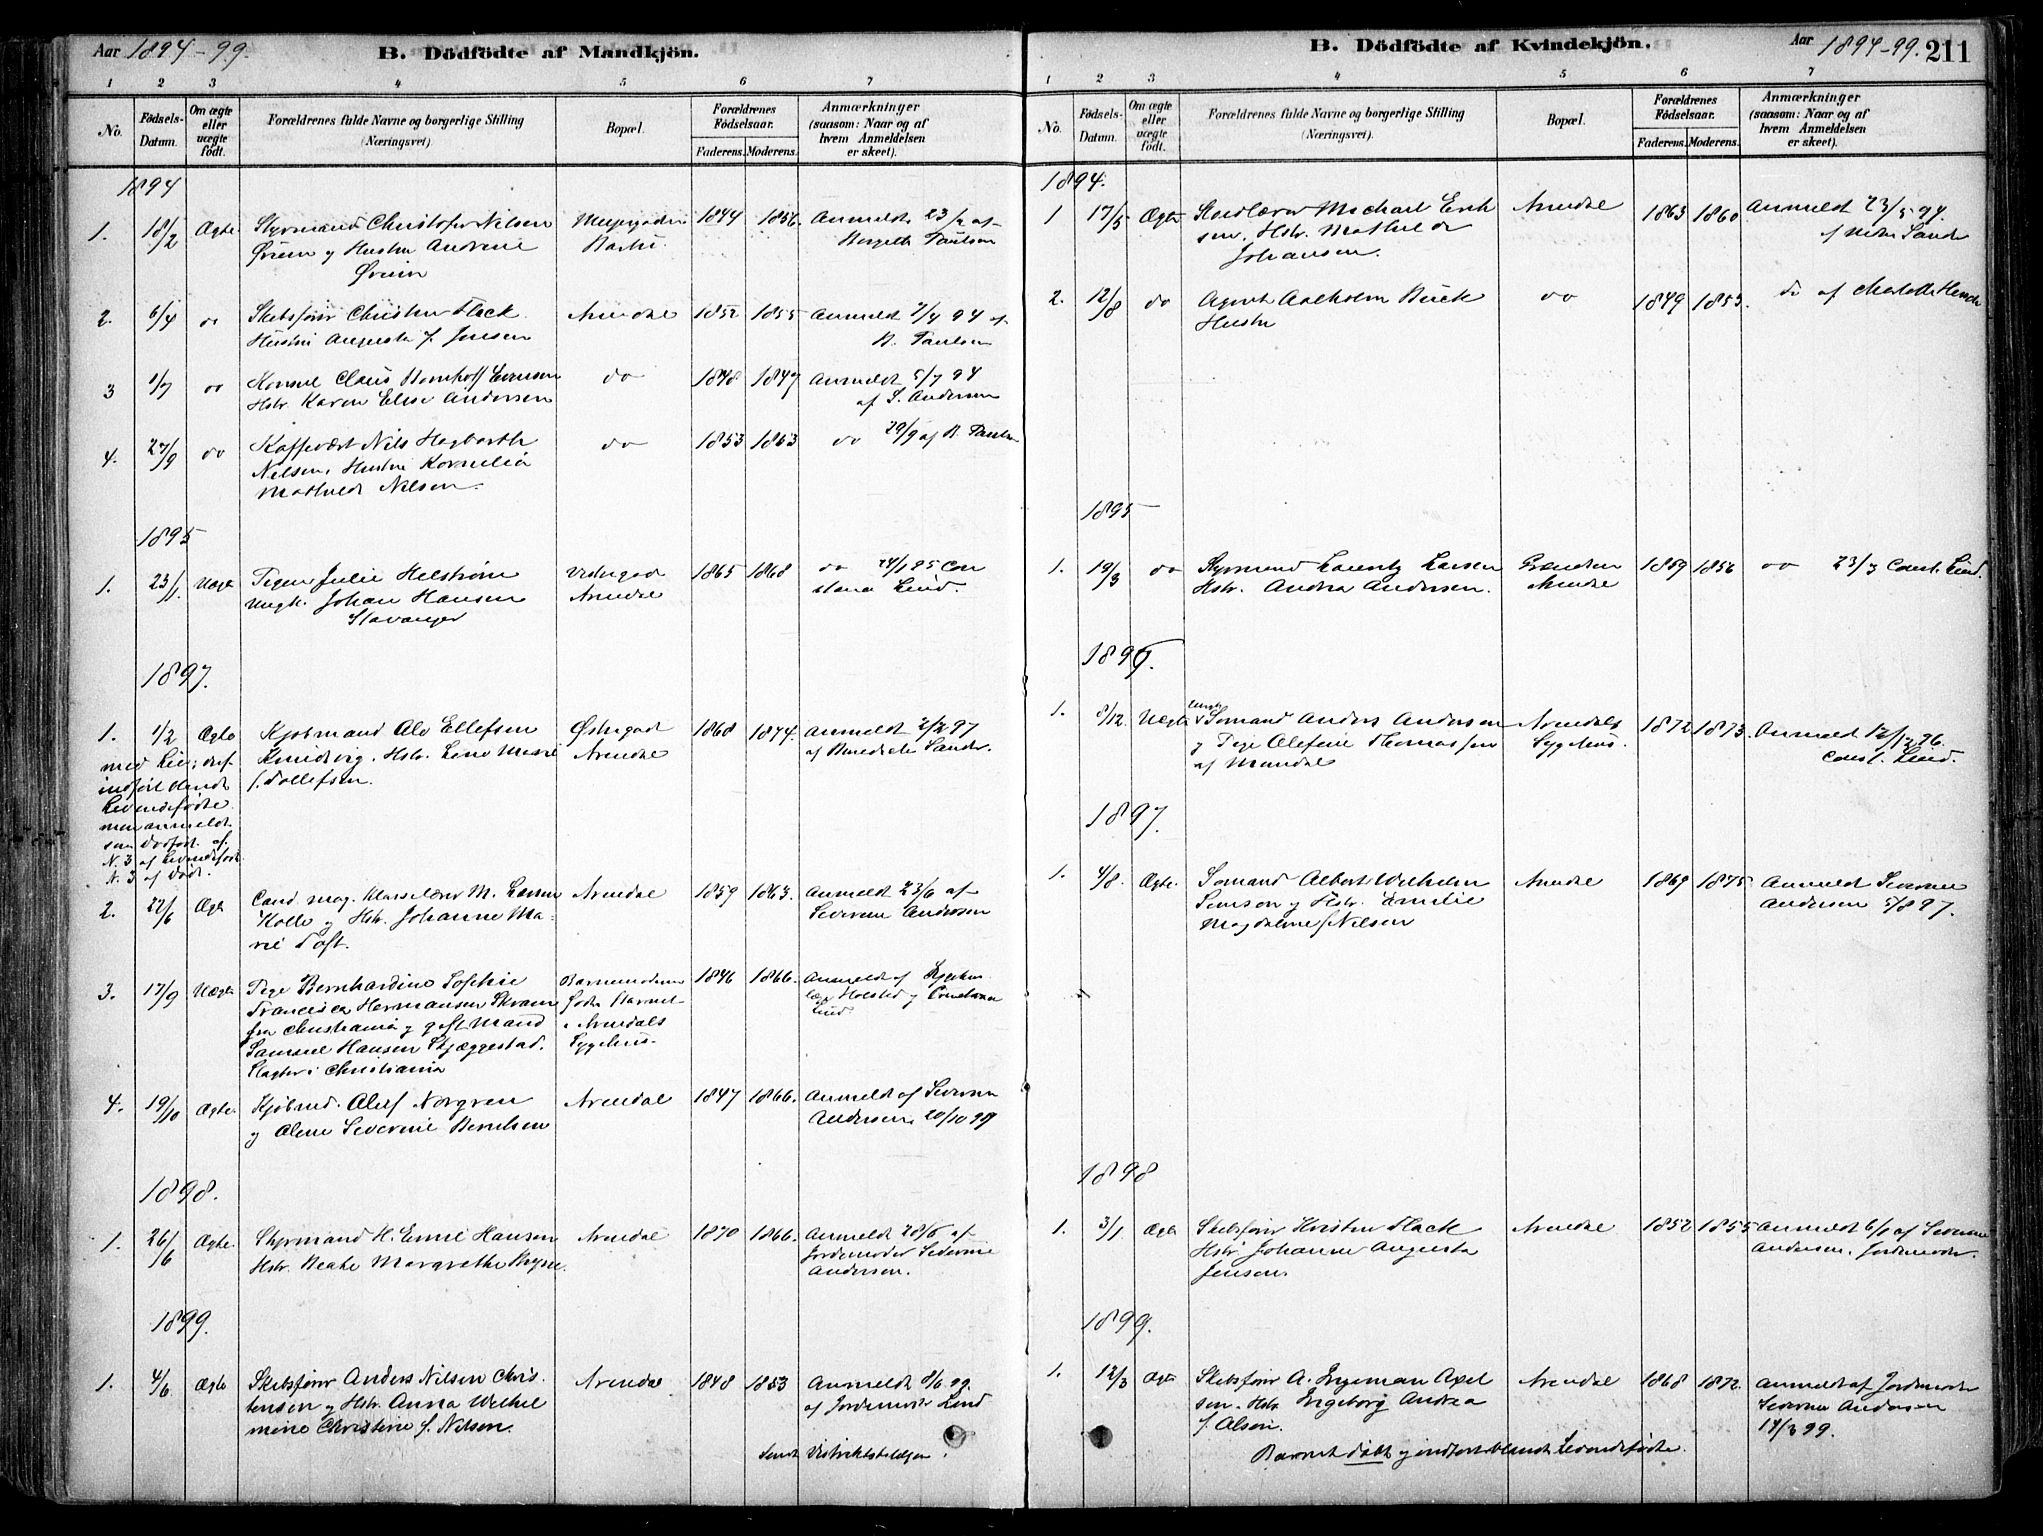 Aar 1894-99. B. Dödfödte af Mandkjön.
1 2 3 4 5 6 7
No. Födsels-Datum. Om ægte eller uægte födt. Forældrenes fulde Navne og borgerlige Stilling (Næringsvei). Bopæl. Forældrenes Födselsaar. Faderens. Moderens. Anmærkninger (saasom: Naar og af hvem Anmeldelsen er skeet).
1894
1. 18/2 Ægte Styrmand Christofer Nilsen 1844 1856. Anmeldt 23/2 af
og Hustru Andrine Paulsen
2. 6/4 do Skibsfører Christen Flack Arendal 1852 1855 Anmeldt 7/4 94 af
Hustru Augusta f. Jensen B. Paulsen
3 1/7 do Konsul Claus Bomhoff Evensen do 1848 1847 Anmeldt 5/7 94
Hstr. Karen Elise Andersen af S. Andersen
4. 27/9 do Kaffevært Nils Hagbarth do 1853 1863 do 29/9 af B. Paulsen
Nilsen, Hustru Kornelia
Mathilde Nilsen.
1895
1. 23/1. Uægte Pigen Julie Helstrøm Vestregade 1865 1868 do 24/1 95 Con
Ungk. Johan Hansen Arendal stance Lind.
Stavanger
1897.
1. 1/2 Ægte Kjøbmand Alo Ellefsen Østregade 1868 1874. Anmeldt 2/2 97
Hstr. Lina Marie Arendal af Benedicte Sande.
f. Tollefsen.
med Liv; der
indført blandt
Levendefødte
men anmeldt
som dødfødt. af
N. 3 af Levendefødt
N. 3 af død.
2. 22/6 Ægte Cand. mag. Klasselærer M. Arendal 1859 1863. Anmeldt 23/6 af
Kolle og Hstr. Johanne Ma- Severine Andersen
rie Toft.
3. 17/9 Uægte Pige Bernhardine Sofhie 1846 1866. Anmeldt af Sygehus
Francisca Hermansen Holsted og Constance
fra Christiania og gift Mand i Arendals Lind
Samuel Hansen Skjæggestad. Sygehus.
Slagter i Christiania
4. 19/10 Ægte Kjøbmd. Oluf Norgren Arendal 1847 1866. Anmeldt af Severine
og Oline Severine Berntsen Andersen 20/10 97
1898.
1. 26/6 Ægte. Styrmand H. Emil Hansen Arendal 1870 1866. Anmeldt 28/6 af
Hstr. Beate Margrethe Jordemoder Severine
Andersen.
1899.
1. 4/6 Ægte Skibsfører Anders Nilsen Chris Arendal 1848 1853 Anmeldt 8/6 99.
tensen og Hstr. Anna Wilhel af Jordemoder Lind
mine Christine f. Nilsen.
Sendt Distriktslægen.
B. Dödfödte af Kvindekjön. Aar 1894-99. 211
1 2 3 4 5 6 7
No. Födsels-Datum. Om ægte eller uægte födt. Forældrenes fulde Navne og borgerlige Stilling (Næringsvei). Bopæl. Forældrenes Födselsaar. Faderens. Moderens. Anmærkninger (saasom: Naar og af hvem Anmeldelsen er skeet).
1894.
1 17/5 Ægte Michael Erik Arendal 1863 1860 Anmeldt 23/5 94.
sen. Hstr. Mathilde af Sande
Johansen.
2. 12/8 do Agent Aalholm Buck do 1849 1853. do af Charlotte
Hustru
1895
1. 19/3 do Styrmand Lauritz Larsen 1859 1856 do 23/3 Const. Lind.
Hstr. Andrea Andersen. Arendal
1896.
1. 8/12 Uægte Ungk. Sømand Anders Andersen Arendals 1872 1873. Anmeldt 12/12 96.
og Pige Olefine Thomassen Sygehus. Const. Lind.
af Mandal
1897.
1. 4/8. Ægte. Sømand Albert Wilhelm Arendal 1869 1875 Anmeldt Severine
Simson og Hstr. Emilie Andersen 5/8 97.
Magdalene f. Nilsen
1898
1. 3/1 Ægte Skibsfører Kristen Flack Arendal 1852 1855 Anmeldt 6/1 af Severine
Hstr Johanne Augusta Andersen. Jordemoder.
Jensen.
1899.
1. 12/3 Ægte Skibsfører A. Ingeman Axel Arendal 1868 1872. Anmeldt af Jordemoder
sen. Hstr Ingeborg Andrea Severine Andersen
f. Olsen. 14/3 99.
Barnet døbt og indført blandt Levendefødte.